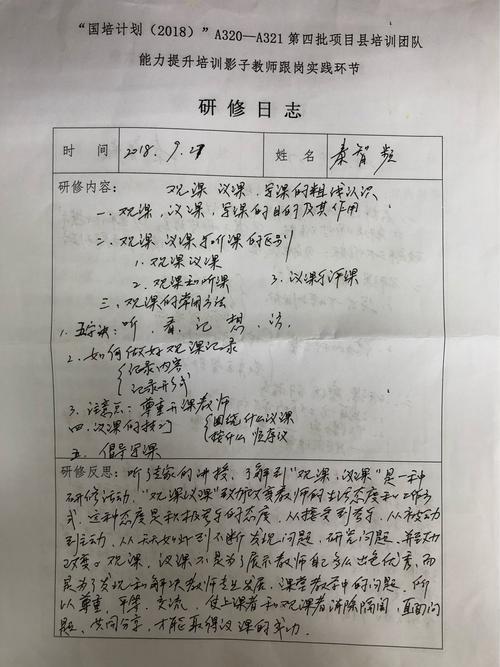 “国培计划（2018）”A320—A321 第四批项目县培训团队
能力提升培训影子教师跟岗实践环节
研 修 日 志
时 间 2018. 9. 27 姓 名 秦智
研修内容： 观课 议课，学课的粗浅认识
一、观课，议课，学课的目的及其作用
二、观课 议课与听课的区别
1. 观课议课
2. 观课和听课 3. 议课与评课
三、观课的常用方法
1. 五字决：听、看、记 想、谈
2. 如何做好观课记录
记录内容
记录形式
3. 注意点：尊重开课教师
四、议课的技巧 围绕什么议课
按什么顺序议
五、倡导学课
研修反思：听了专家的讲授，了解到“观课，议课”是一种
研修活动，“观课议课”致力改变教师的生活态度和工作方
式，这种态度是积极参与的态度，从接受到参与，从被动
到主动，从 到不断发现问题，研究问题，并
改变。观课，议课不是为了展示教师自己多么出色优秀，而
是为了发现和解决教师专业发展、课堂教学中的问题，所
以尊重，平等，交流，使上课者和观课者消除隔阂，直面问
题，共同分享，才能取得议课的成功．